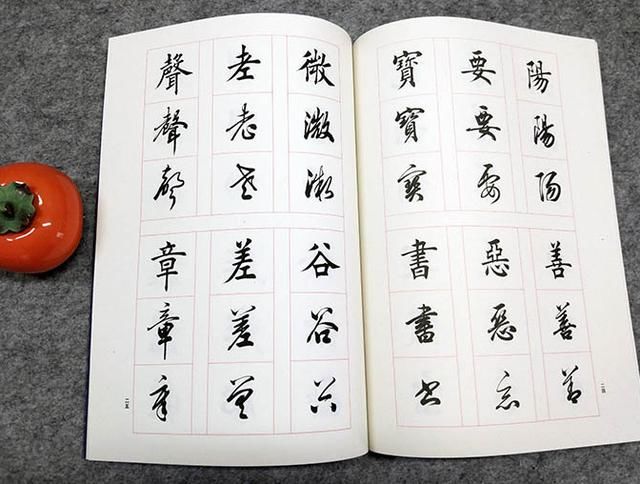 陽陽陽
要要要
寶寶寶
善善善
惡惡惡
書書書
二四
微微微
老老老
聲聲聲
谷谷谷
差差差
章章章
二五